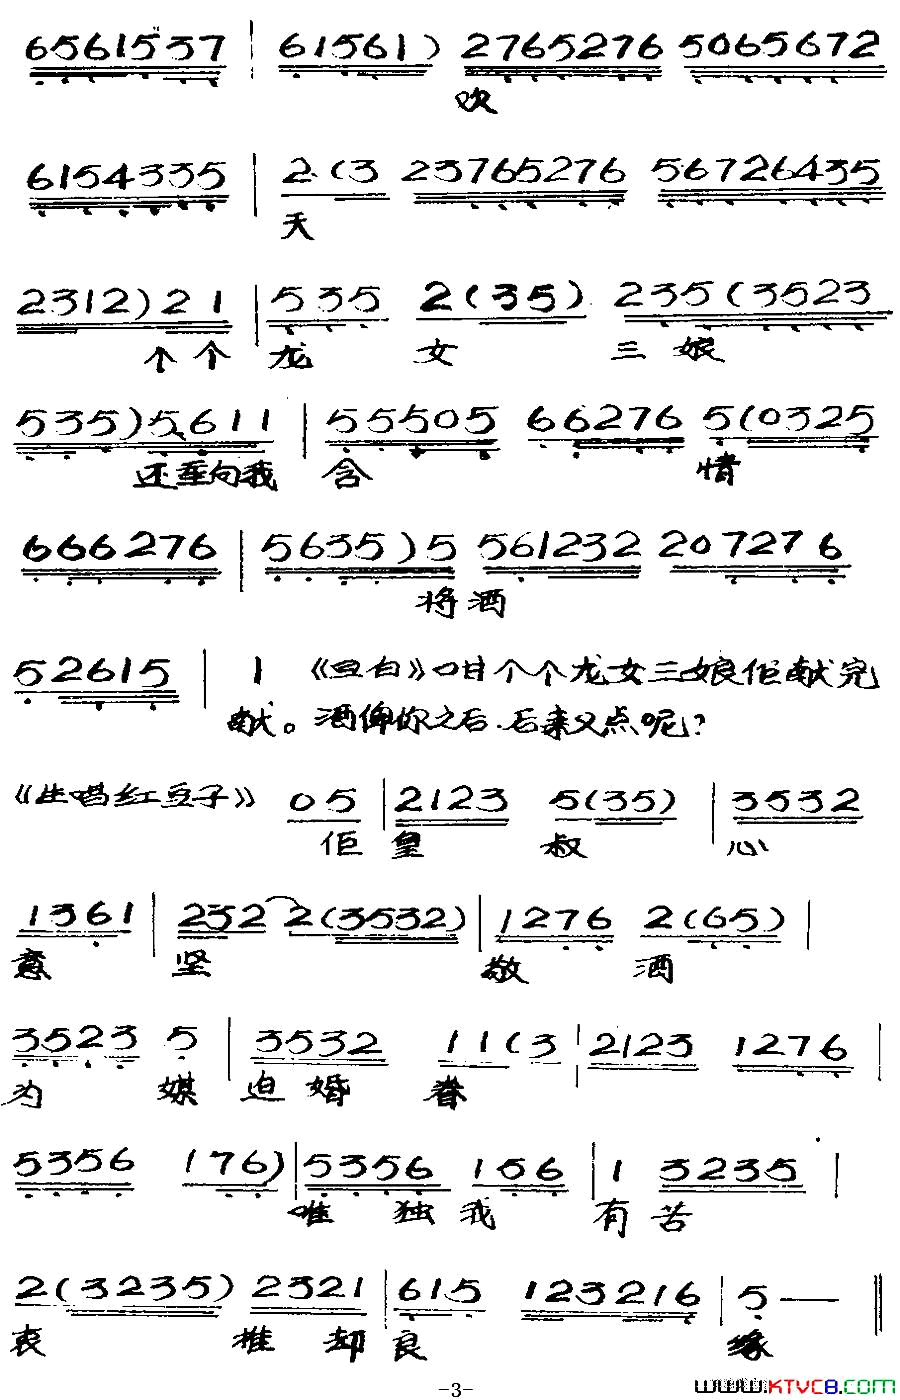 6561537 | 61561) 2765276 5065672
欢
6154335 | 2.(3 23765276 56726435
天
2312) 21 | 535 2(35) 235(3523
个个 龙 女 三 娘
535)5.611 | 55505 66276 5(0325
还垂向我 含 情
666276 | 5635)5 561232 207276
将酒
52615 | 1 《旦白》咁个个龙女三娘佢献完
献。酒俾你之后.后来又点呢?
《生唱红豆子》 05 | 2123 5(35) | 3532
佢 皇 叔 心
1361 | 232 2(3532) | 1276 2(65) |
意 坚 敬 酒
3523 5 | 3532 11(3 | 2123 1276 |
为 媒 迫 婚 眷
5356 176) | 5356 156 | 1 3235 |
唯 独 我 有 苦
2(3235) 2321 | 615 123216 | 5 — ‖
衷 推 却 良 缘
-3-
WWW.KTVC8.COM